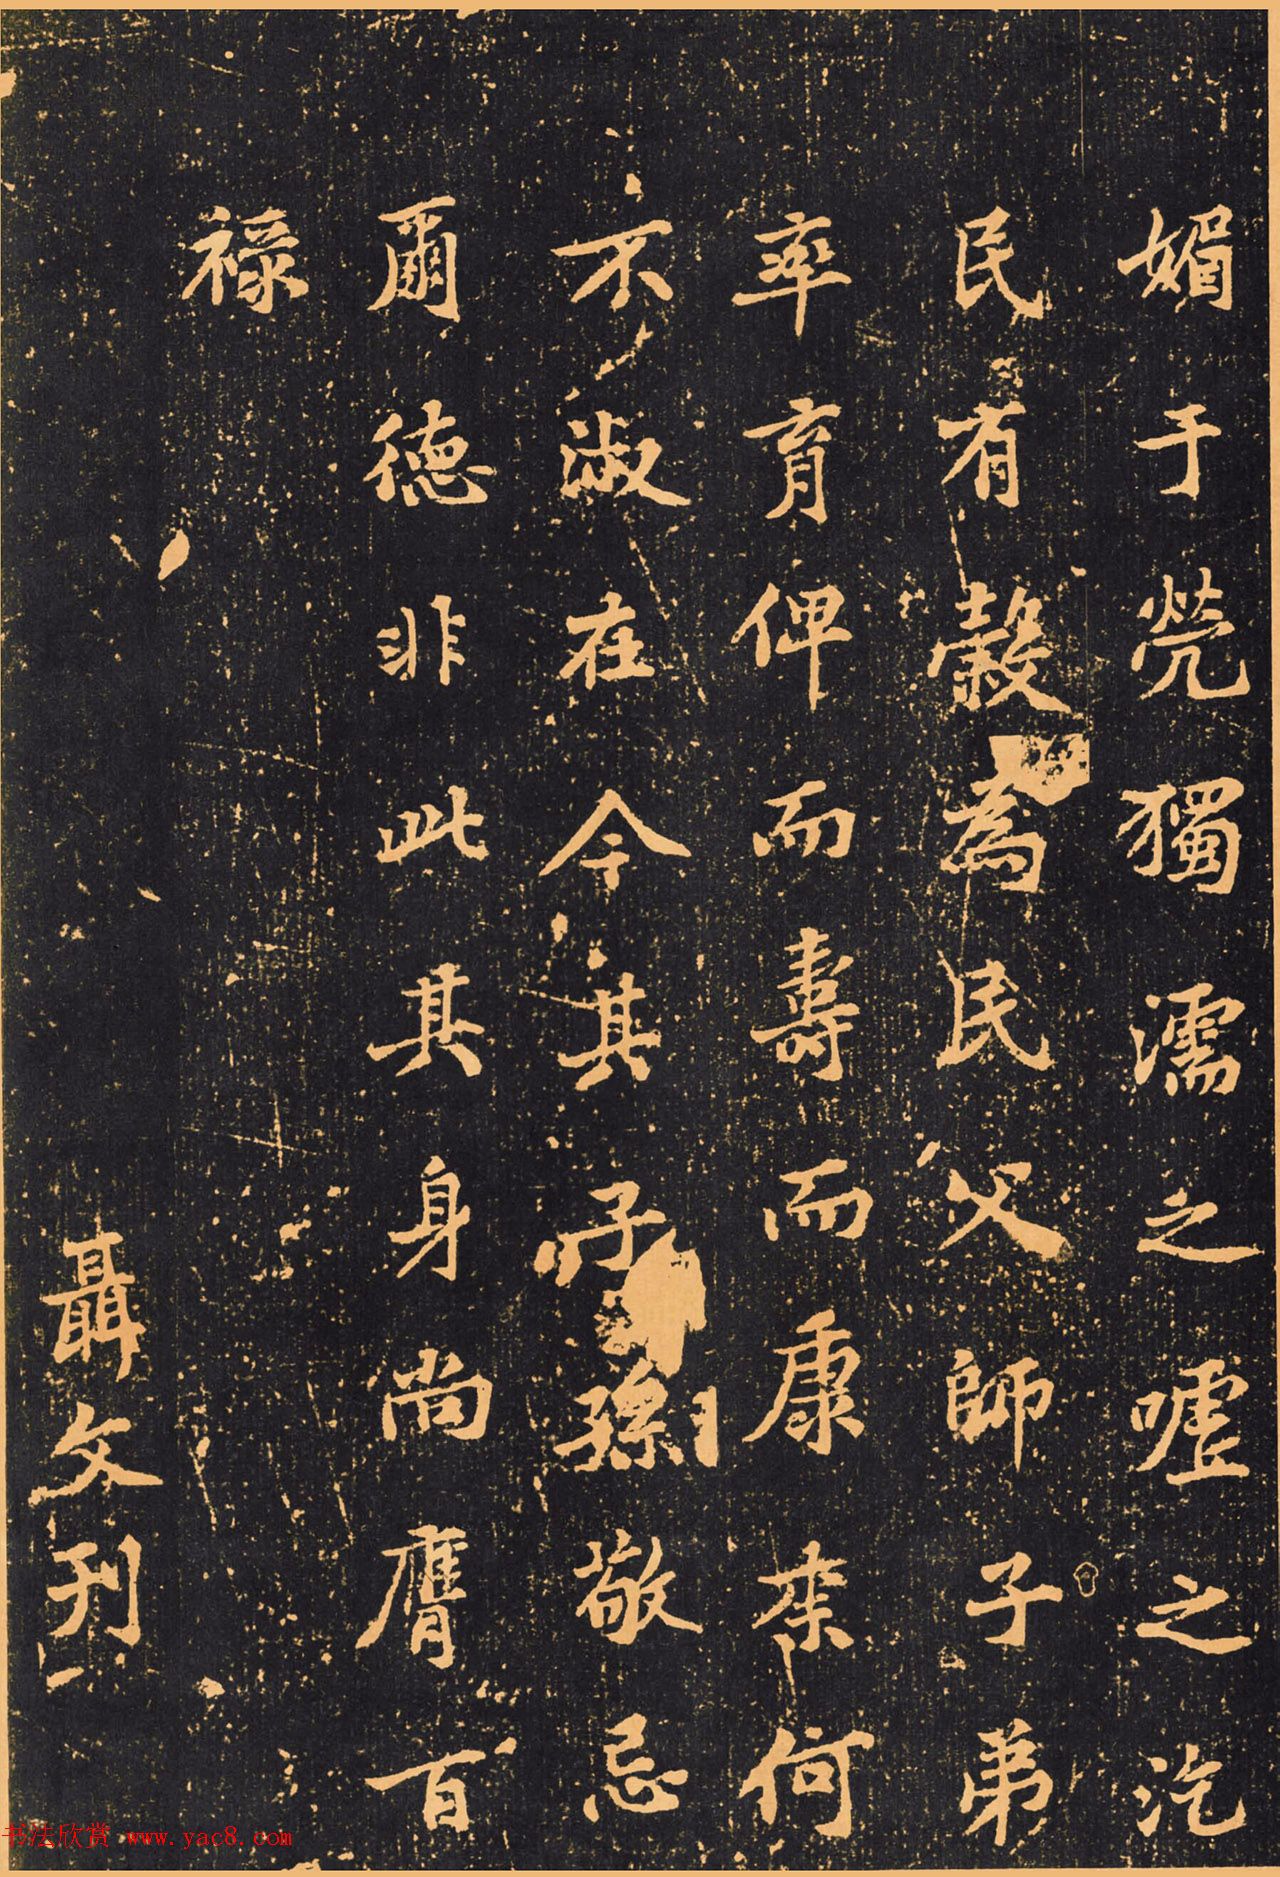 媚于煢獨濡之嘘之汔
民有穀為民父師子弟
率育俾而壽而康来何
不淑在今其子孫敬忌
爾德非此其身尚膺百
祿
聶文刊
书法欣赏 www.yac8.com